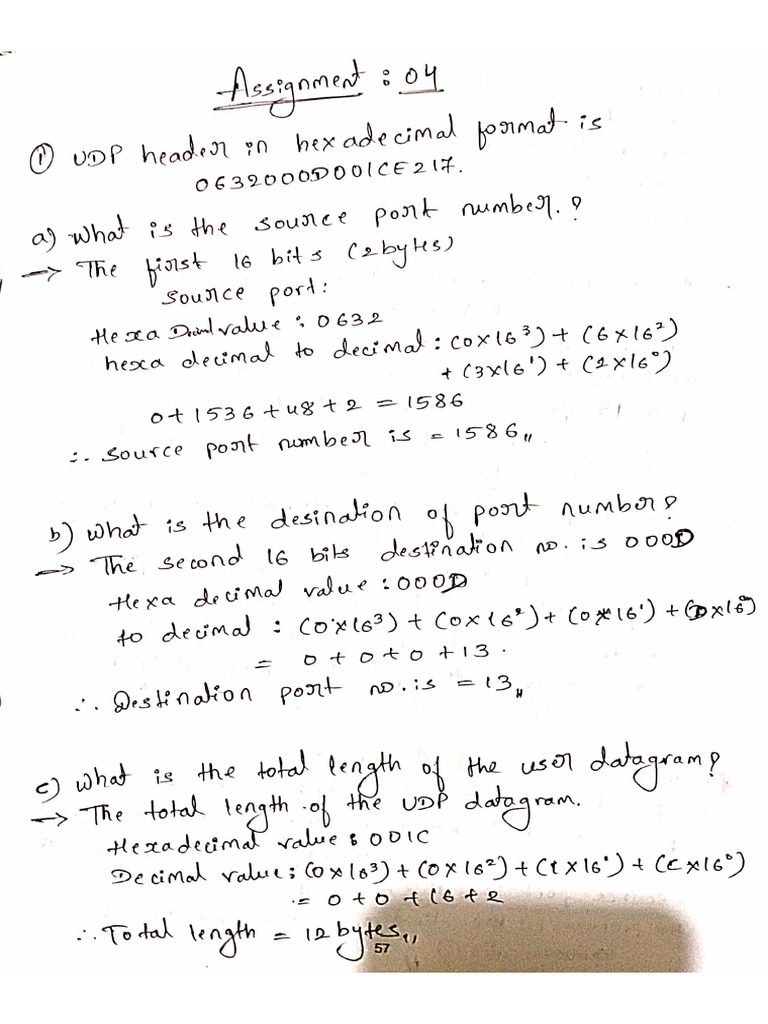 Assignment : 04
① UDP header in hexadecimal format is
0632000D001CE217.
a) What is the source port number.?
→ The first 16 bits (2 bytes)
source port:
Hexa Deciml value : 0632
hexa decimal to decimal : (0×16³) + (6×16²)
+ (3×16¹) + (2×16⁰)
0+1536+48+2 = 1586
∴ source port number is = 1586,,
b) What is the desination of port number?
→ The second 16 bits destination no. is 000D
Hexa decimal value : 000D
to decimal : (0×16³) + (0×16²) + (0×16¹) + (D×16⁰)
= 0 + 0 + 0 + 13 .
∴ Destination port no. is = 13,,
c) What is the total length of the user datagram?
→ The total length of the UDP datagram.
Hexadecimal value : 001C
Decimal value : (0×16³) + (0×16²) + (1×16¹) + (C×16⁰)
= 0 + 0 + 16 + 2
∴ Total length = 12 bytes,,
57